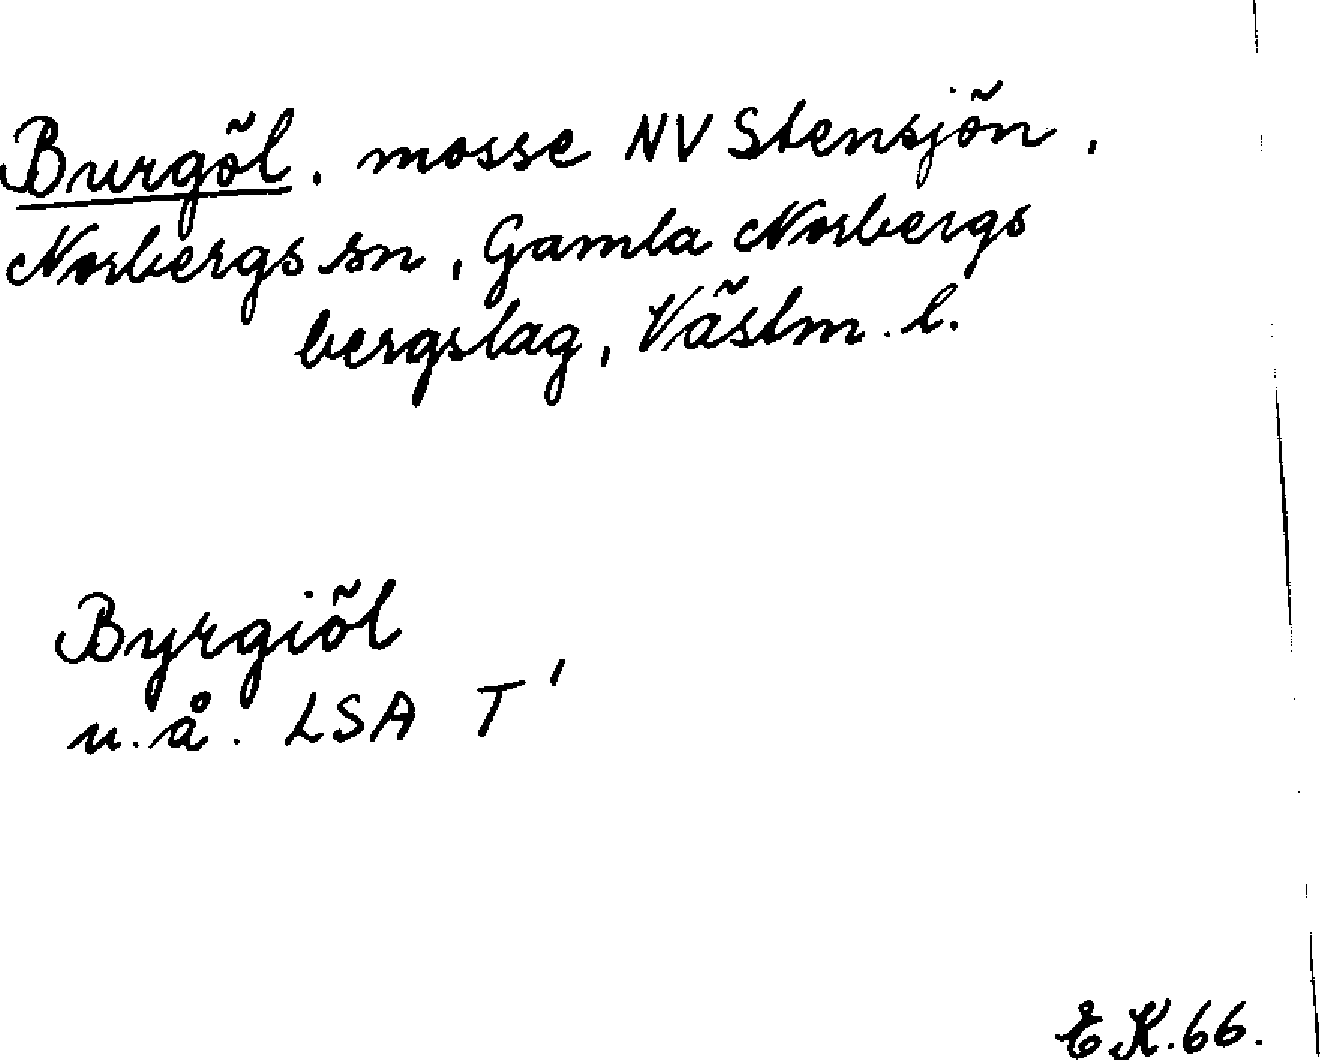 Burgöl. mosse NV Stensjön.
Norbergs sn, Gamla Norbergs
bergslag, Västm. l.
Byrgiöl
u. å. LSA T'
E K. 66.